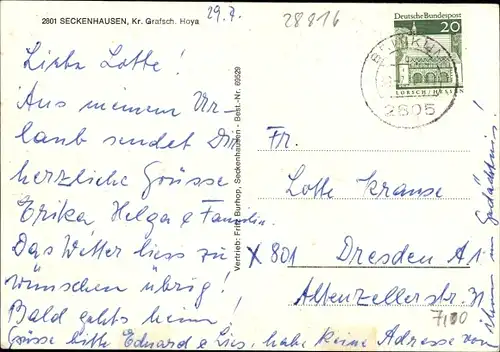 2801 SECKENHAUSEN, Kr. Grafsch. Hoya
29.7.
28816
Deutsche Bundespost
20
LORSCH/HESSEN
2805
Liebe Lotte!
Aus meinem Ur-
laub sendet Dir
herzliche Grüsse
Erika Helga & Familie.
Das Wetter liess zu
wünschen übrig!
Bald gehts heim!
Grüsse bitte Eduard & Lies, habe keine Adresse von
ihnen im Gedächtnis!
Vertrieb: Fritz Burhop, Seckenhausen - Best.-Nr. 09529
Fr.
Lotte Krause
X 801 Dresden A 1
Altenzellerstr. 31
7,00